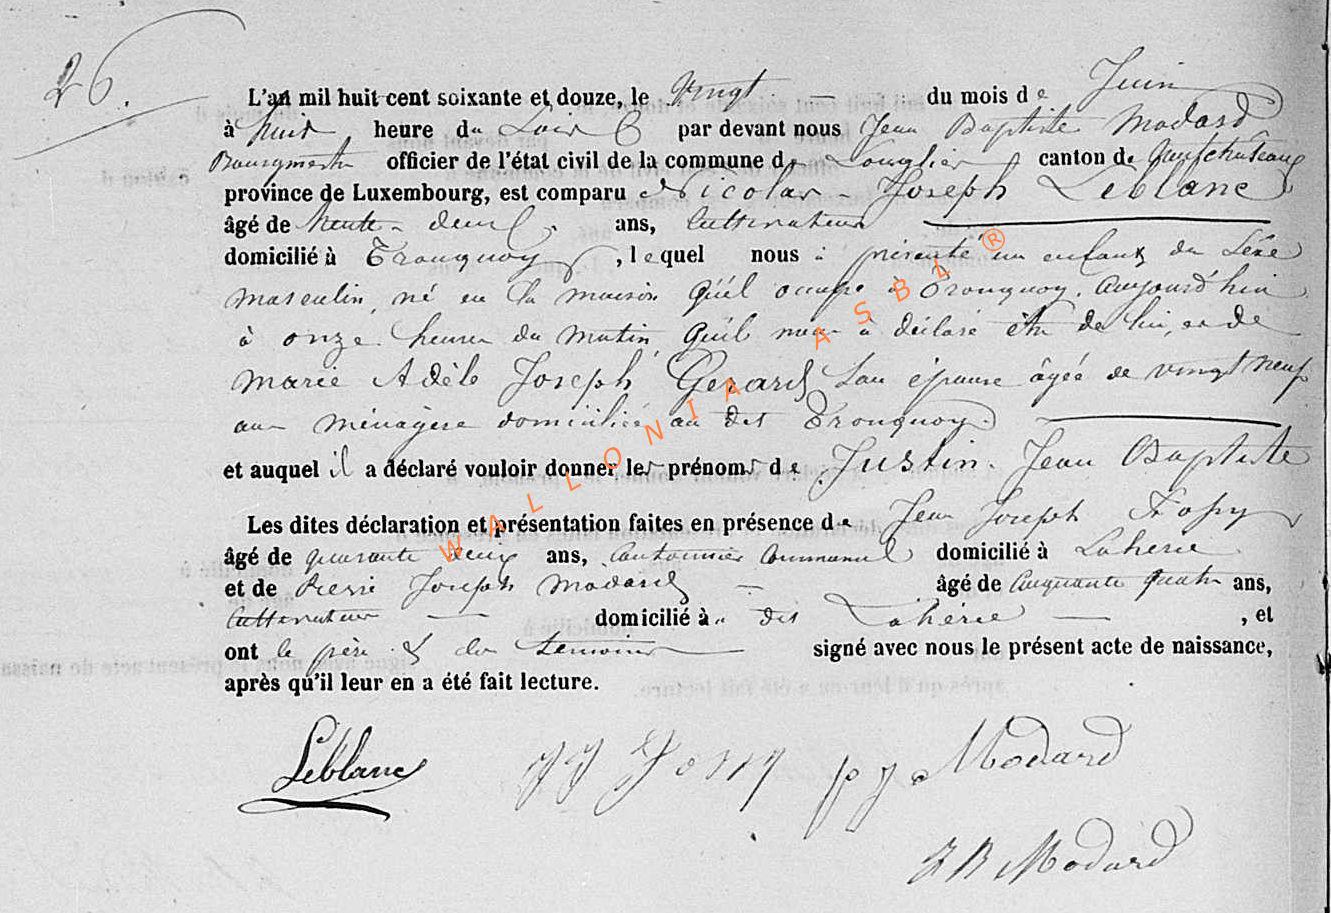 26.
L'an mil huit cent soixante et douze, le vingt — du mois de Juin
à huit heure du Soir par devant nous Jean Baptiste Modard
Bourgmestre officier de l'état civil de la commune de Longlier canton de Neufchateau
province de Luxembourg, est comparu Nicolas - Joseph Leblanc
âgé de trente - deux ans, Cultivateur
domicilié à Tronquoy, lequel nous à présenté un enfant du Sexe
masculin, né en la maison qu'il occupe à Tronquoy, aujourd'hui
à onze heures du matin, qu'il nous à déclaré être de lui, et de
Marie Adèle Joseph Gerard Son épouse âgée de vingt neuf
ans ménagère domiciliée au dit Tronquoy.
et auquel il a déclaré vouloir donner les prénoms de Justin - Jean Baptiste
Les dites déclaration et présentation faites en présence de Jean Joseph Fosy
âgé de quarante deux ans, Cantonnier Communal domicilié à Laherie
et de Pierre Joseph Modard — âgé de Cinquante quatre ans,
Cultivateur — domicilié à dit Lahérie — , et
ont le père & les temoins — signé avec nous le présent acte de naissance,
après qu'il leur en a été fait lecture.
Leblanc JJ Fosy p j Modard
J B Modard
WALLONIA ASBL ®